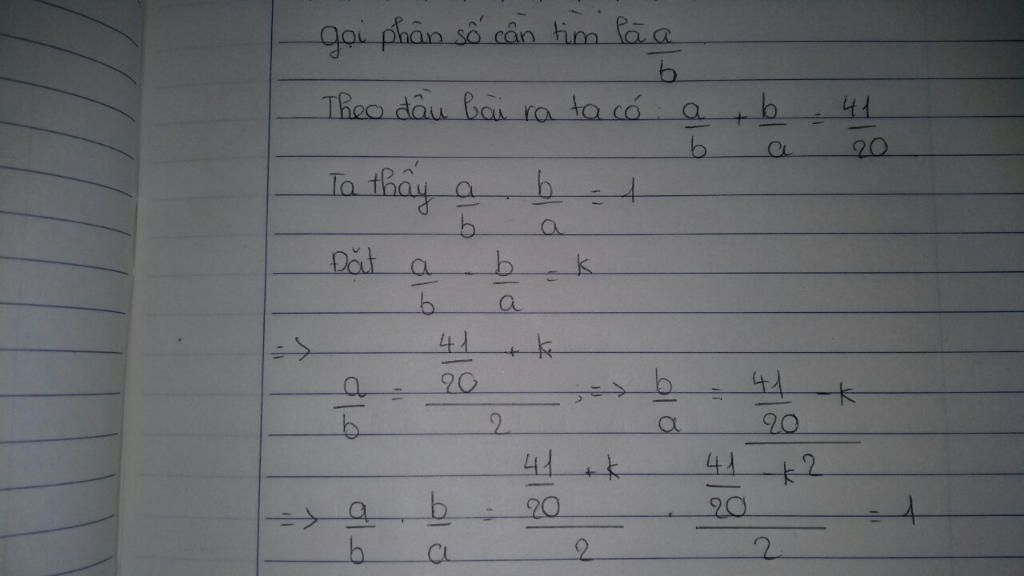 gọi phân số cần tìm là a/b
Theo đầu bài ra ta có: a/b + b/a = 41/20
Ta thấy a/b . b/a = 1
Đặt a/b - b/a = k
=> a/b = (41/20 + k)/2 ; => b/a = (41/20 - k)/2
=> a/b . b/a = (41/20 + k)/2 . (41/20 - k)/2 = 1